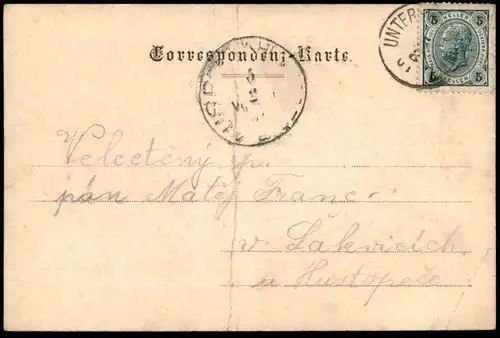 Correspondenz-Karte.
UNTER
5 HELLER 5
5 5
Velectěný p.
pán Matěj Franc
v Šakvicích
u Hustopeče